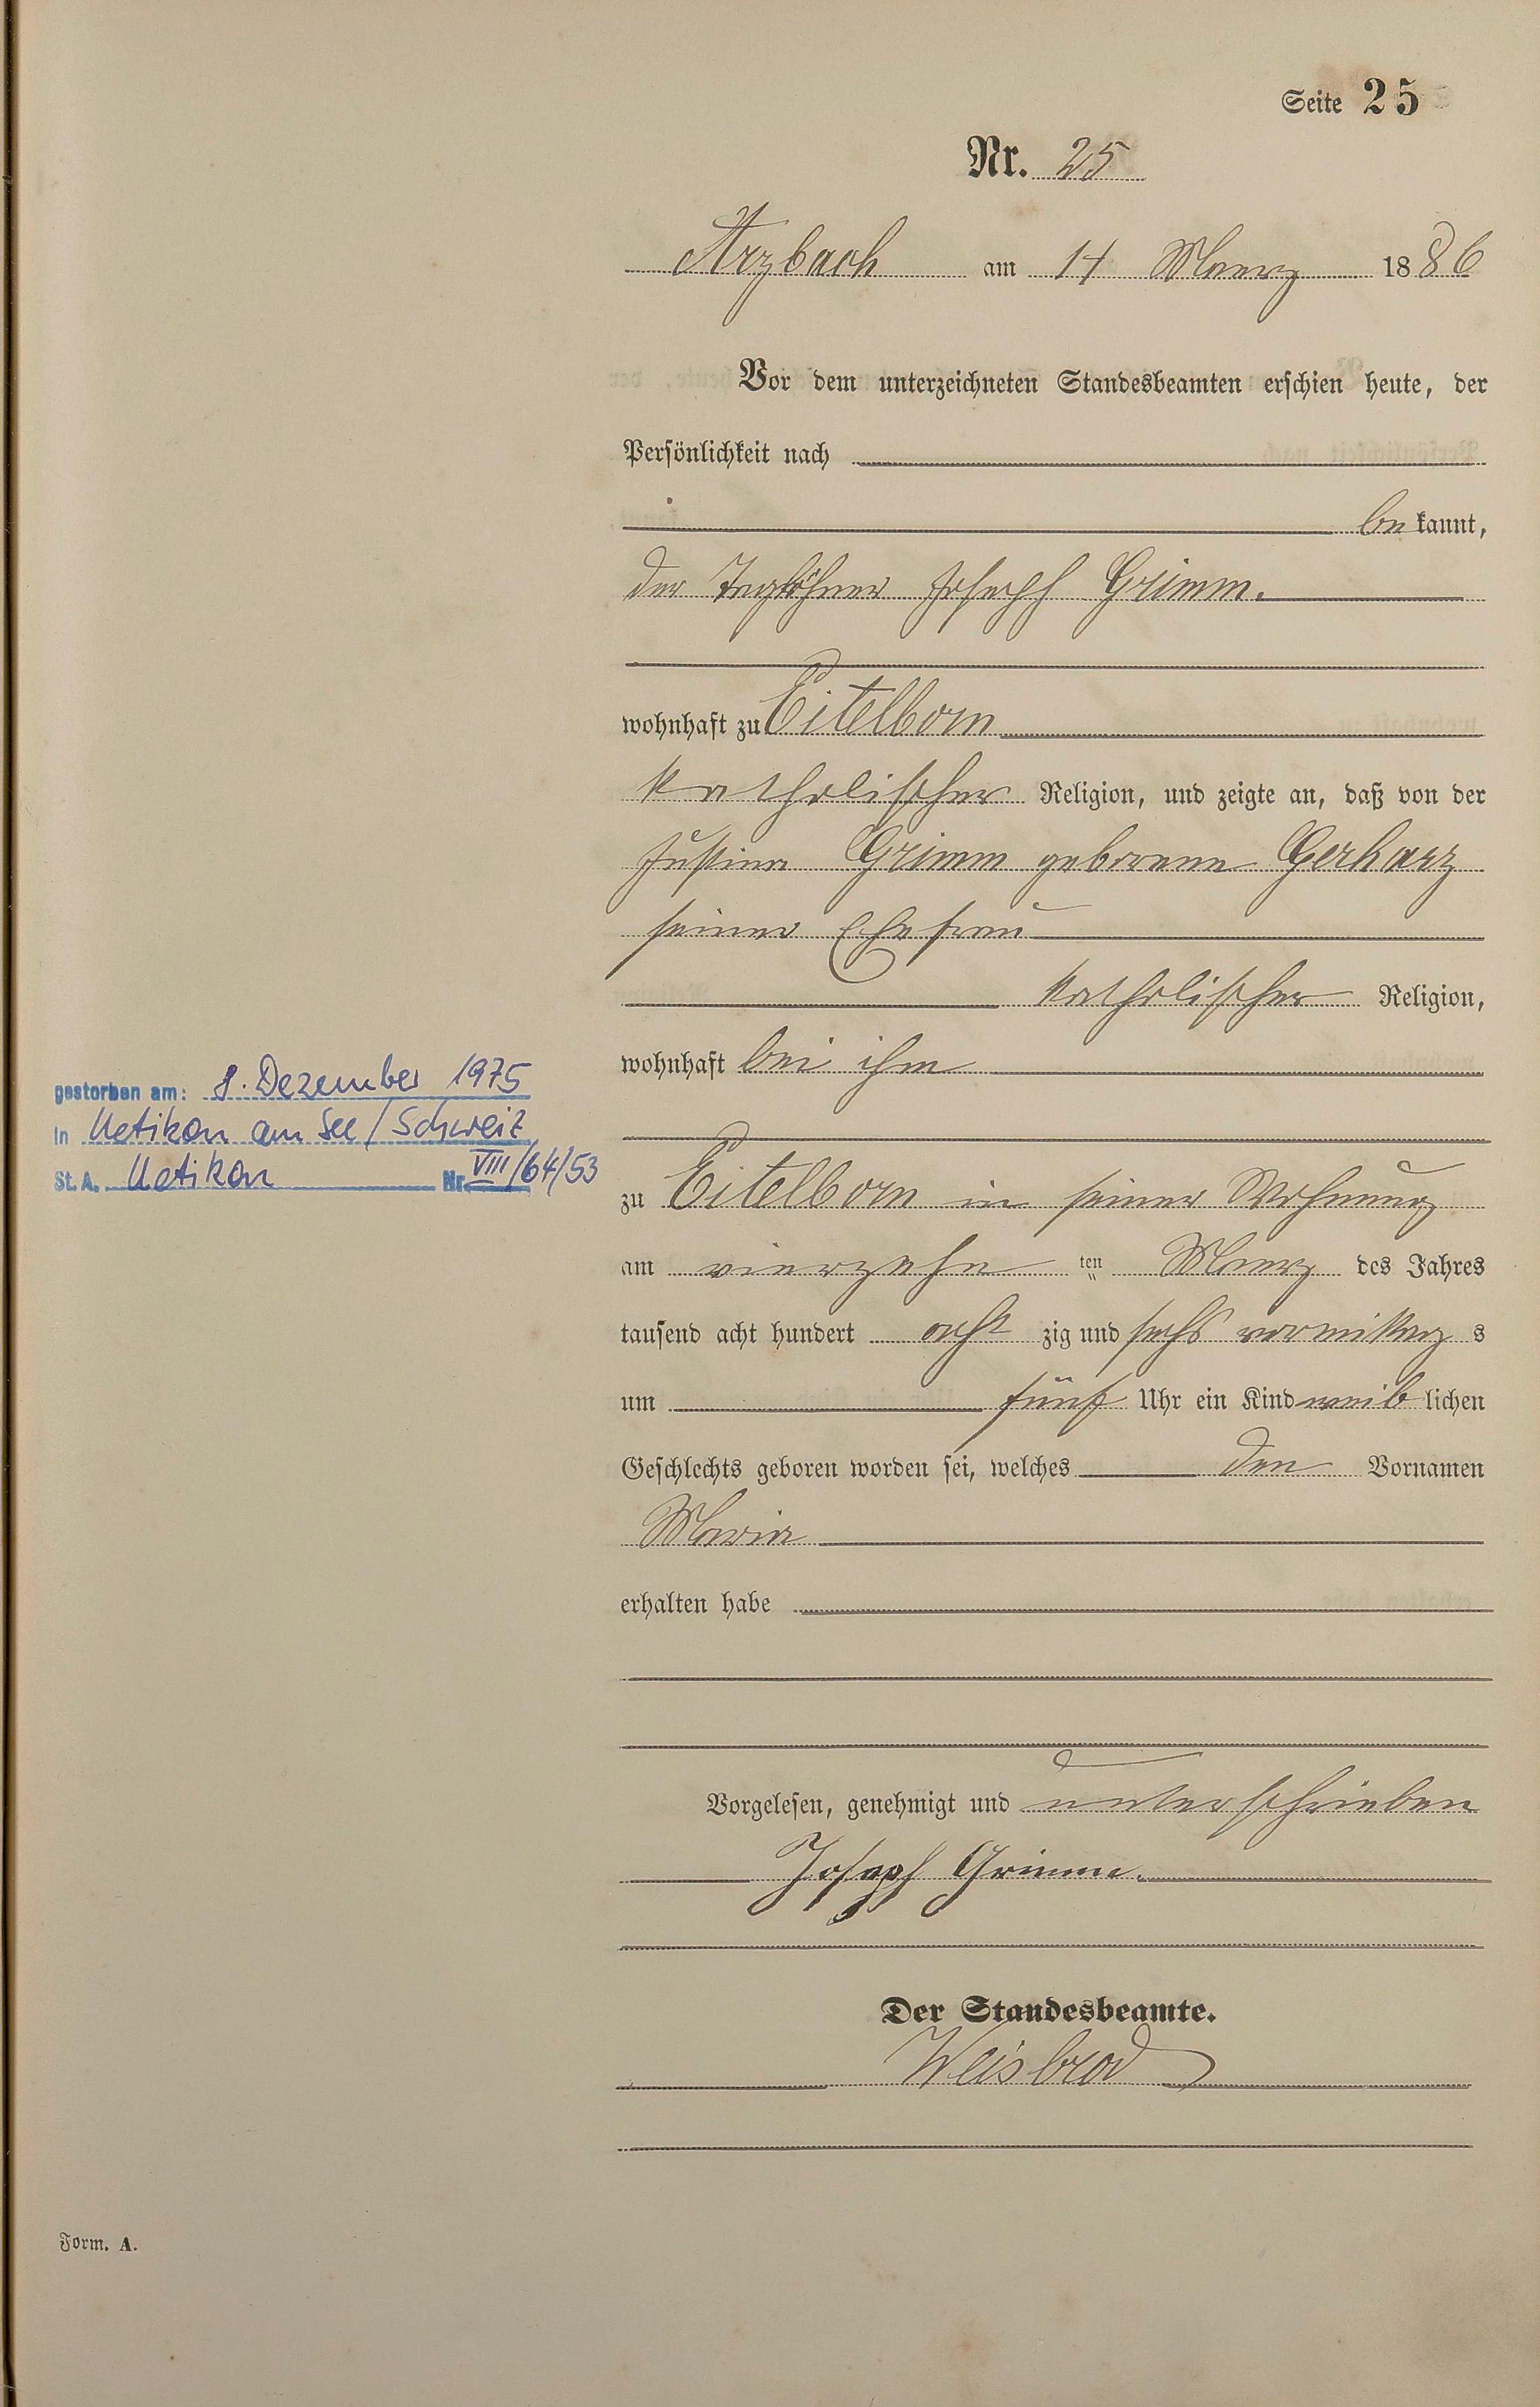 Seite 25
Nr. 25
Arzbach am 14 Maerz 1886
Vor dem unterzeichneten Standesbeamten erschien heute, der
Persönlichkeit nach
bekannt,
der Taglöhner Joseph Grimm.
wohnhaft zu Eitelborn
katholischer Religion, und zeigte an, daß von der
Justina Grimm geborene Gerharz
seiner Ehefrau
katholischer Religion,
wohnhaft bei ihm
gestorben am: 8. Dezember 1975
in Uetikon am See / Schweiz
St. A. Uetikon Nr. VIII/64/53
zu Eitelborn in seiner Wohnung
am vierzehn ten Maerz des Jahres
tausend acht hundert acht zig und sechs vormittag s
um fünf Uhr ein Kind weiblichen
Geschlechts geboren worden sei, welches den Vornamen
Maria
erhalten habe
Vorgelesen, genehmigt und unterschrieben
Joseph Grimm.
Der Standesbeamte.
Weisbrod
Form. A.